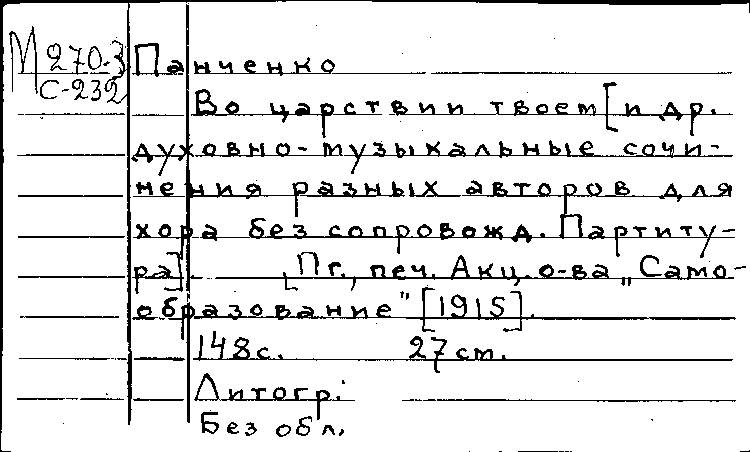 М 270-3
С-232
Панченко
Во царствии твоем [и др.
духовно-музыкальные сочи-
нения разных авторов для
хора без сопровожд. Партиту-
ра]. [Пг., печ. Акц. о-ва „Само-
образование" [1915].
148 с. 27 см.
Литогр.
Без обл.